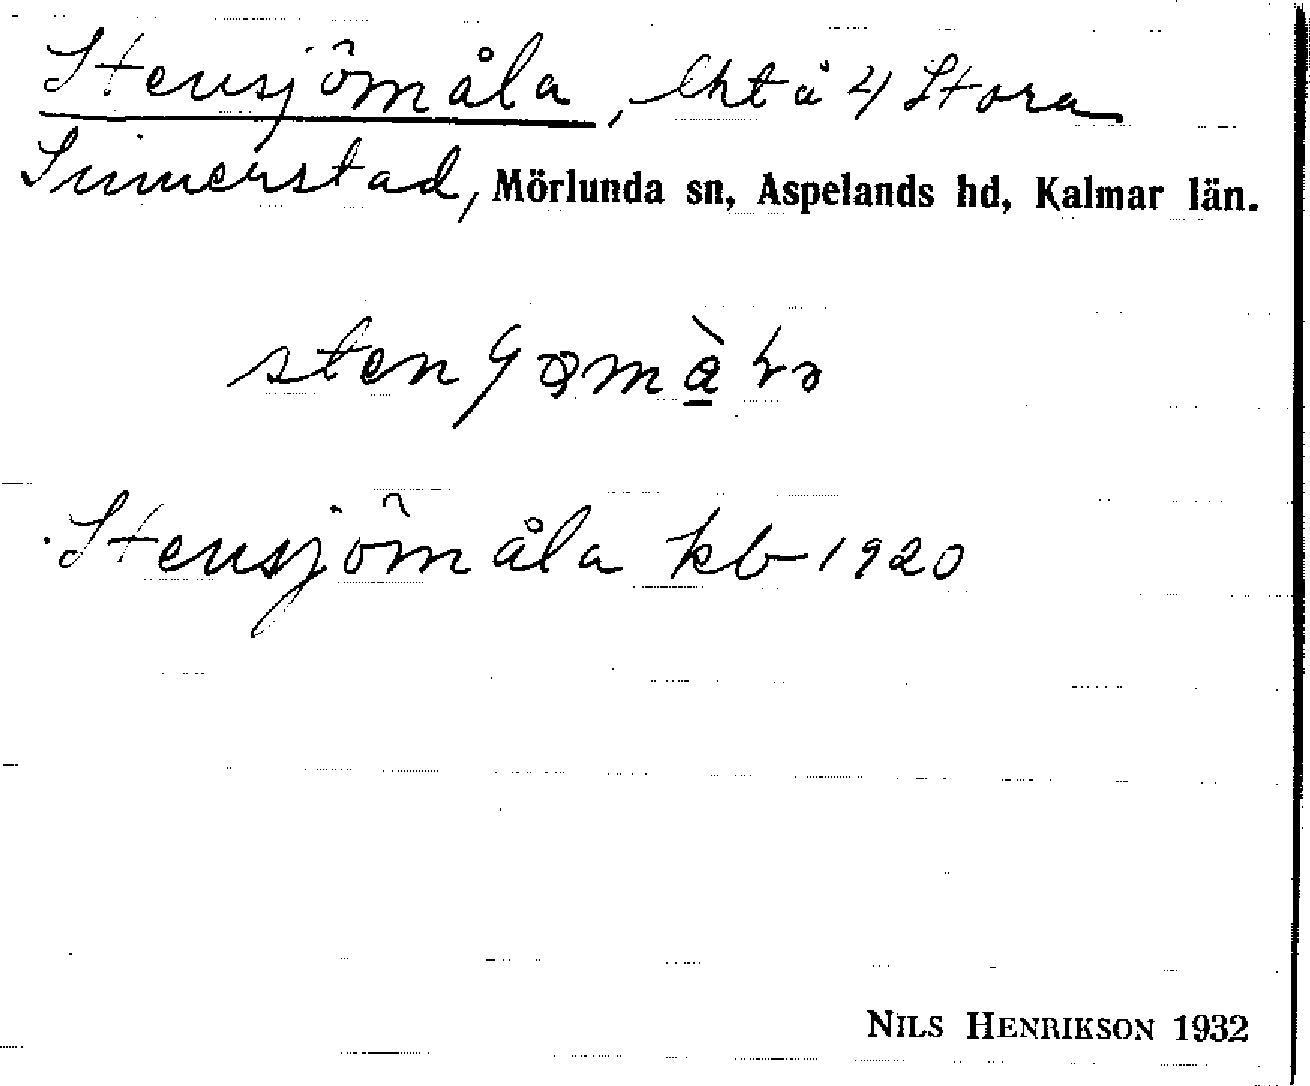 Stensjömåla, lht å 4 Stora
Simerstad, Mörlunda sn, Aspelands hd, Kalmar län.
Stensjömåla kb 1920
NILS HENRIKSON 1932